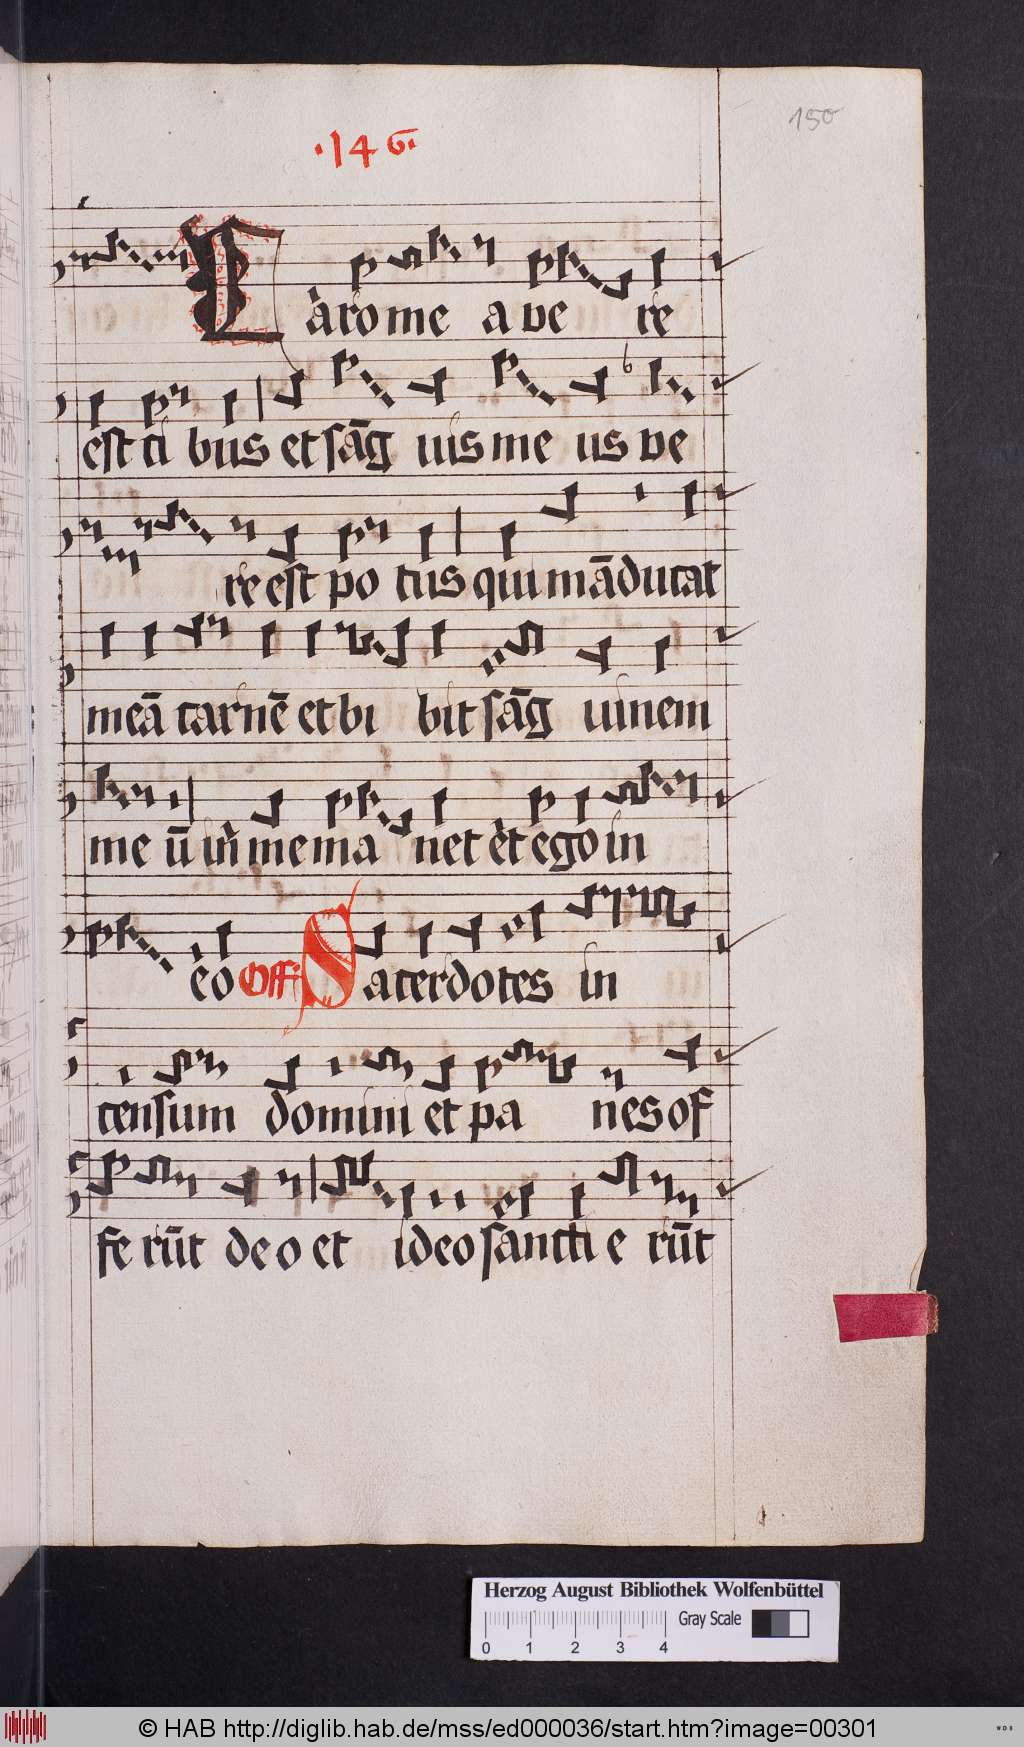 ·146·
150
Caro me a ve re
est ti bus et sāg uis me us ve
re est po tus qui māducat
meā carnē et bi bit sāg uinem
me ū in me ma net et ego in
eo Off. Sacerdotes in
censum domini et pa nes of
fe rūt deo et ideo sancti e rūt
Herzog August Bibliothek Wolfenbüttel
Gray Scale
0 1 2 3 4
© HAB http://diglib.hab.de/mss/ed000036/start.htm?image=00301